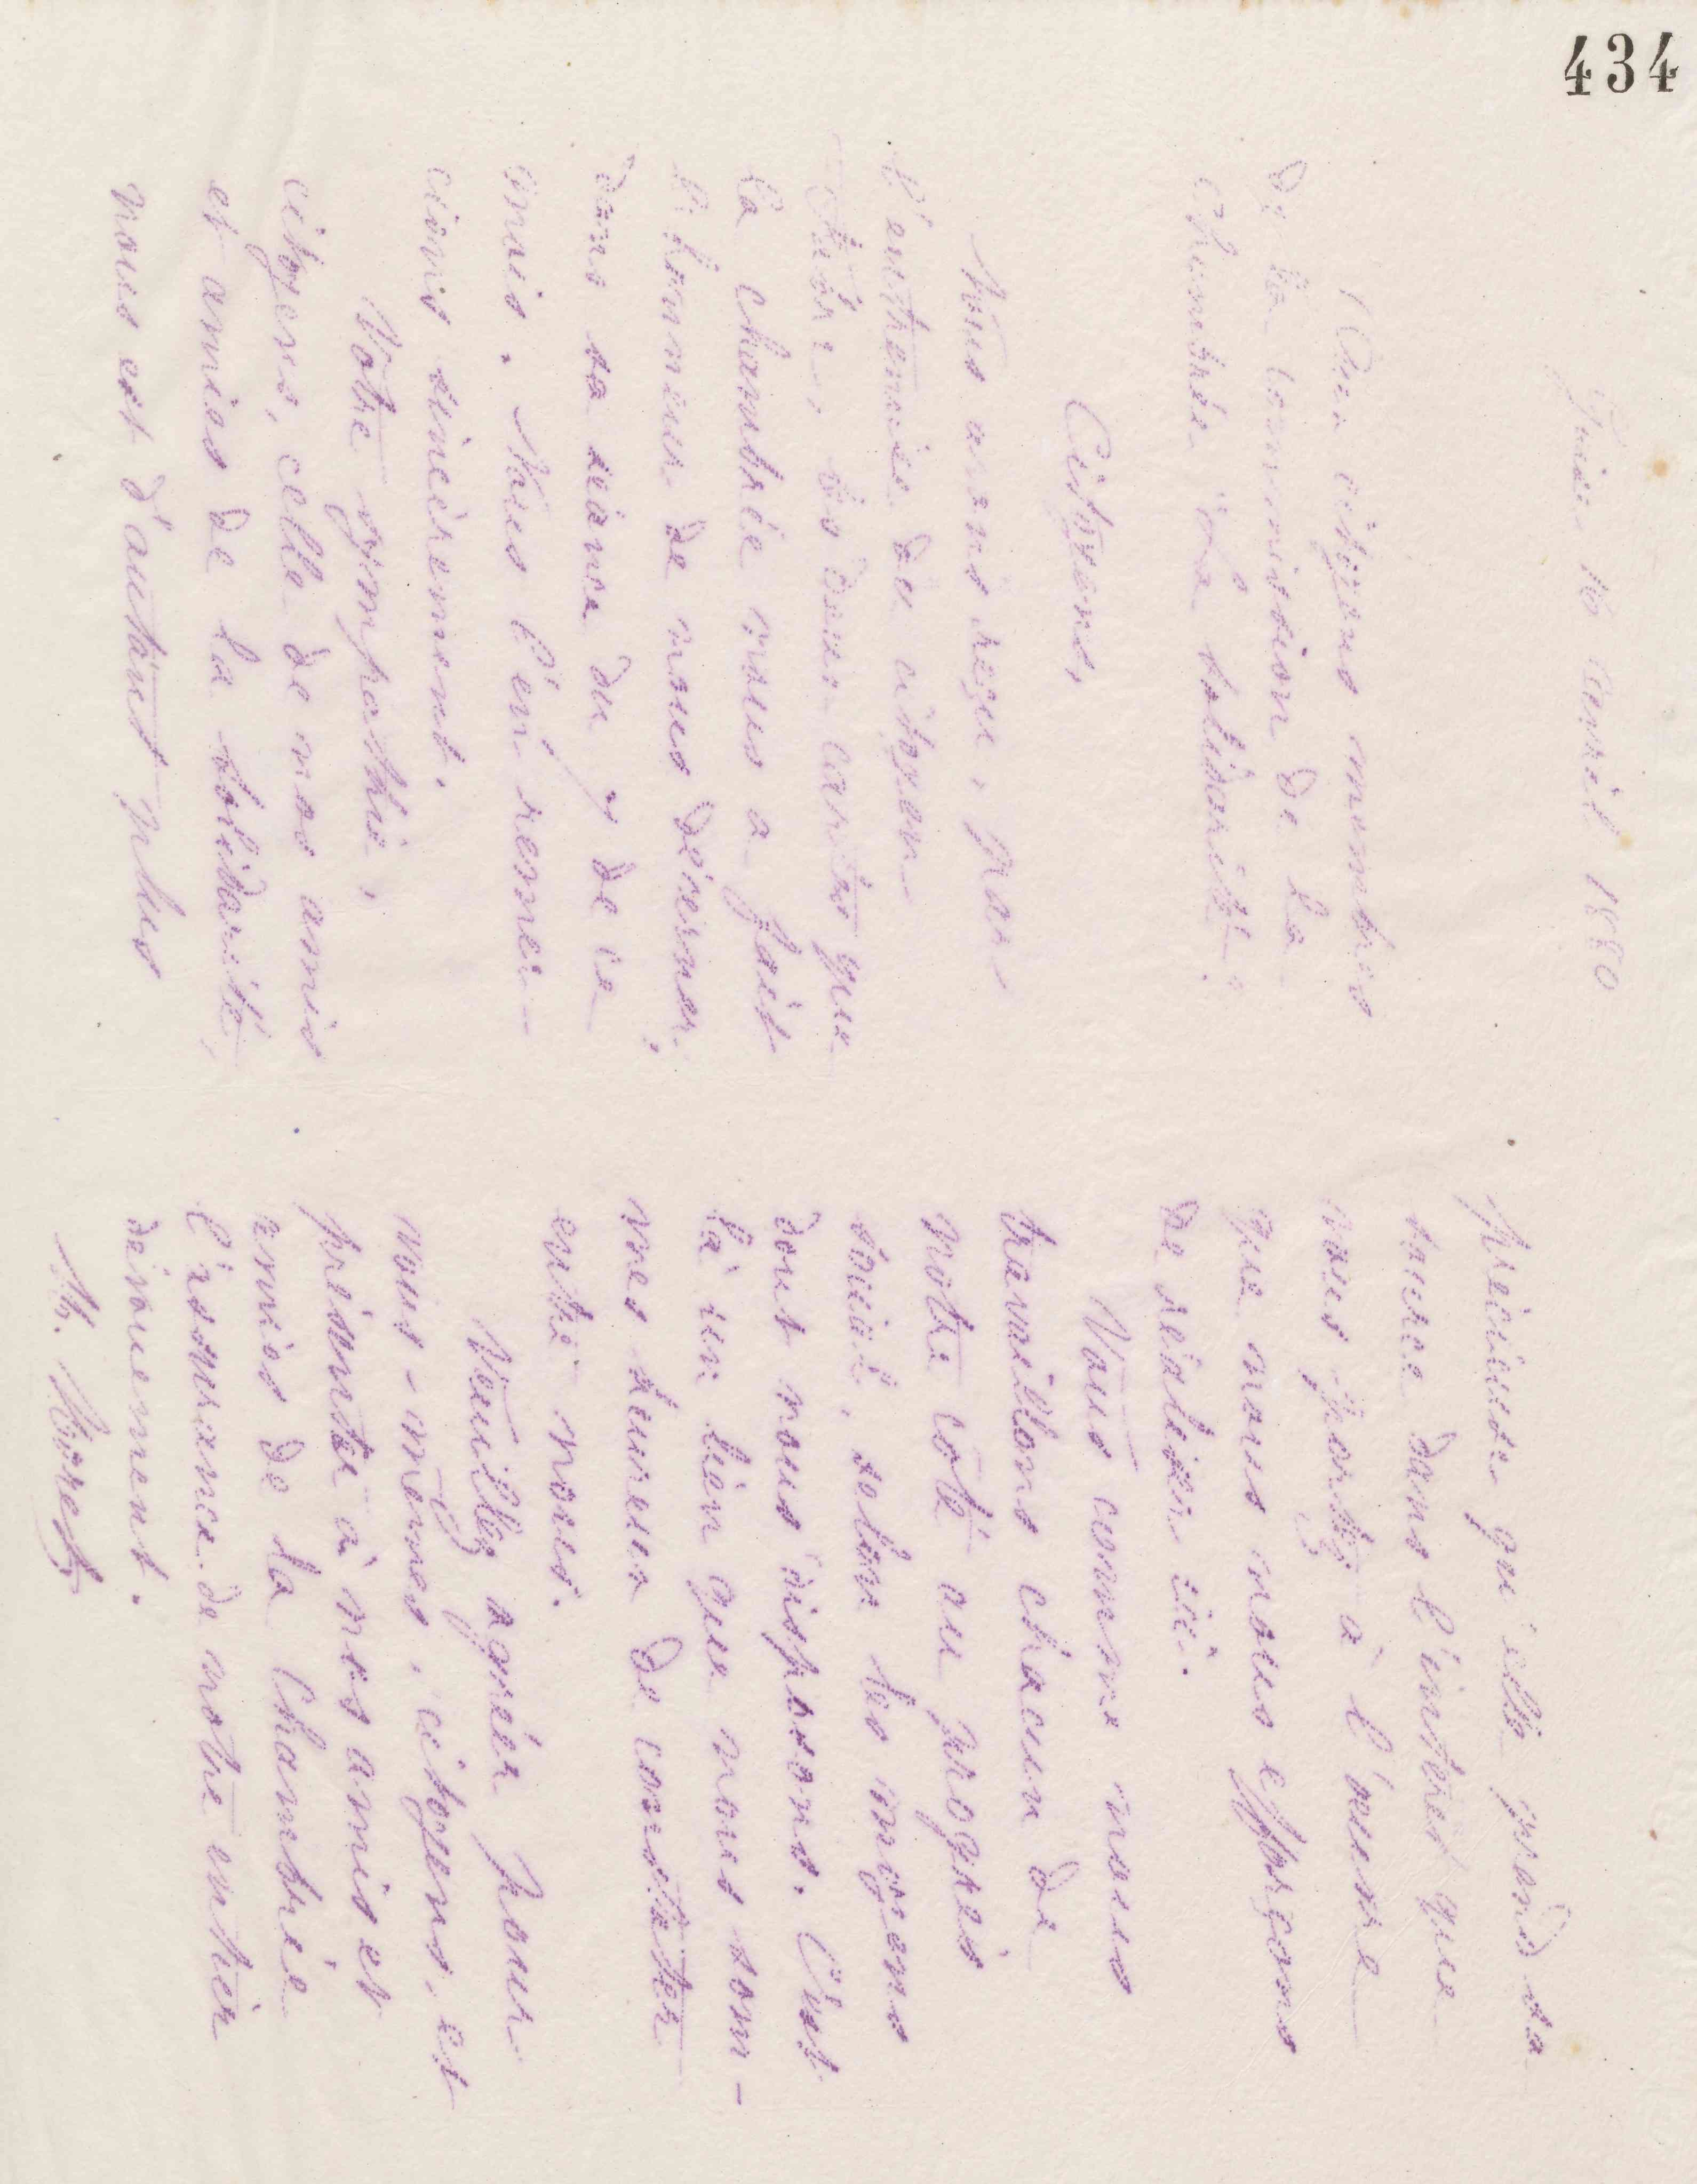 434
Guise 16 avril 1880
Aux citoyens membres
de la commission de la
Chambrée "La Solidarité".
Citoyens,
Nous avons reçu, par
l'entremise du citoyen
les deux cartes que
la chambrée nous a fait
l'honneur de nous décerner,
dans sa séance du 7 de ce
mois. Nous l'en remer-
cions sincèrement.
Votre sympathie,
citoyens, celle de nos amis
et amies de la Solidarité,
nous est d'autant plus
précieuse qu'elle prend sa
source dans l'intérêt que
vous portez à l'œuvre
que nous nous efforçons
de réaliser ici.
Vous comme nous
travaillons chacun de
notre côté au progrès
social, selon les moyens
dont nous disposons. C'est
là un lien que nous som-
mes heureux de constater
entre nous.
Veuillez agréer pour
vous-mêmes, citoyens, et
présenter à nos amis et
amies de la Chambrée
l'assurance de notre entier
dévouement.
M. Moret